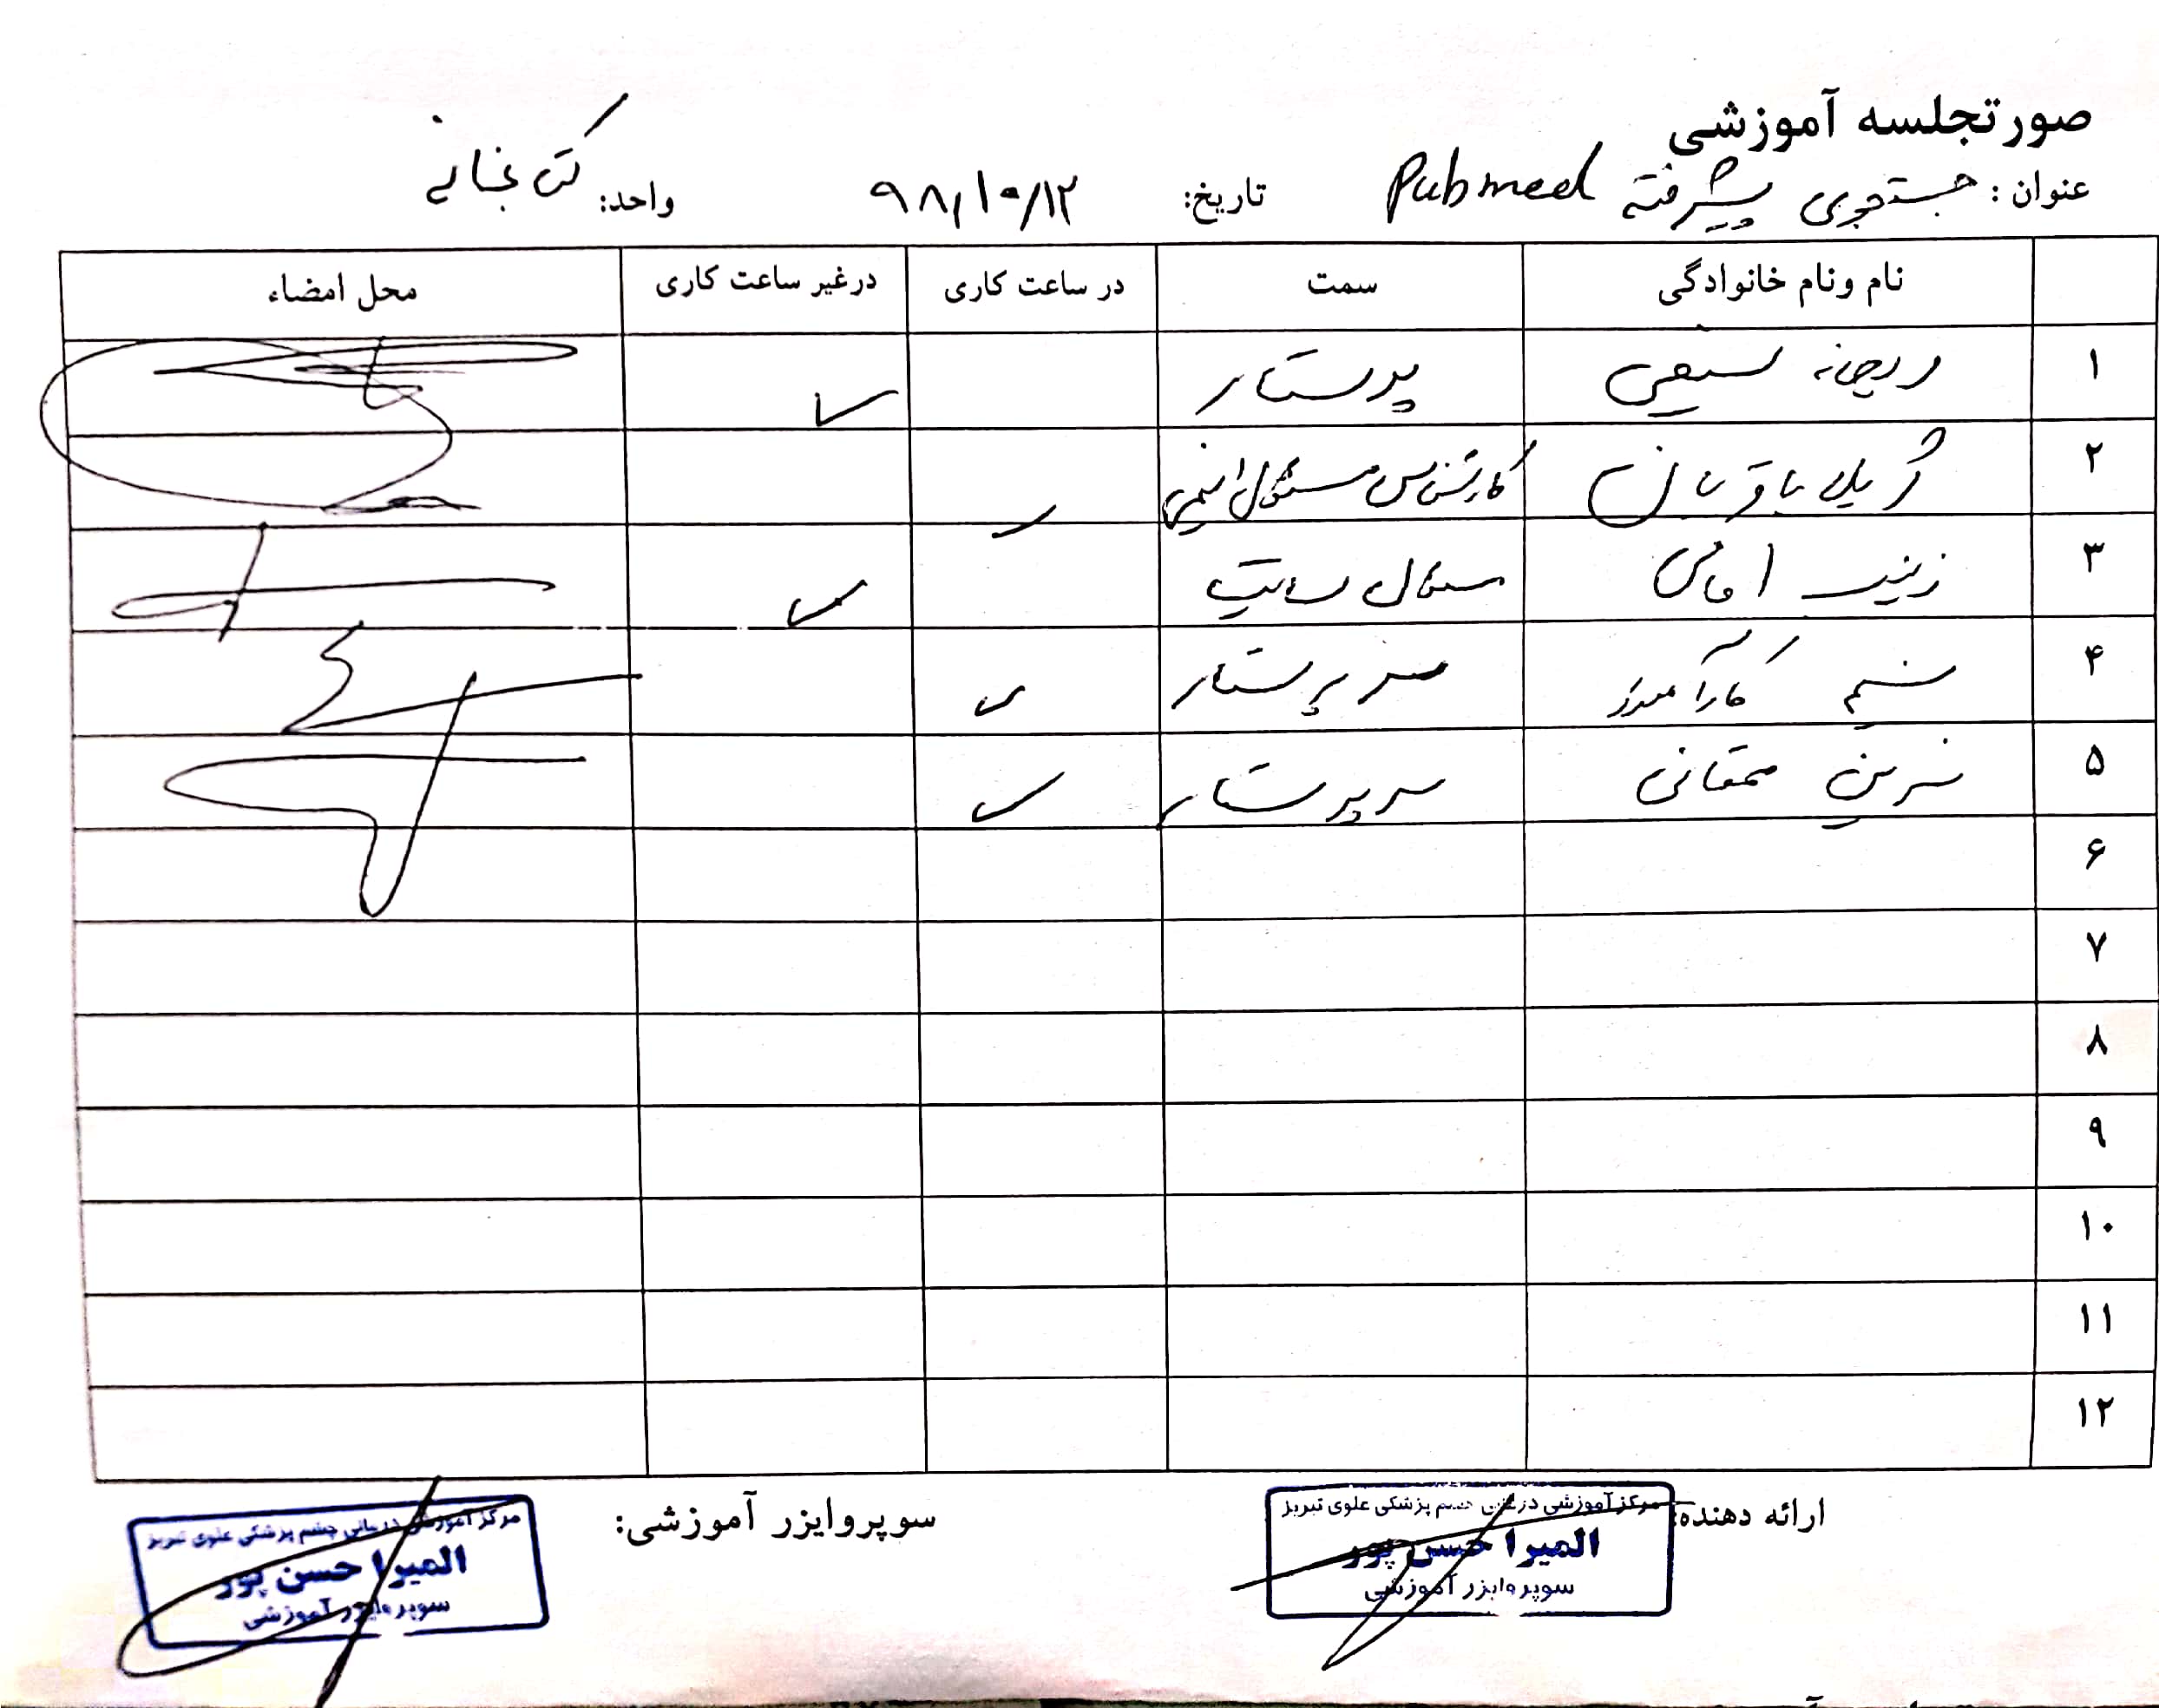 صورتجلسه آموزشی
عنوان: جستجوی پیشرفته Pubmed تاریخ: ۹۸/۱۰/۱۲ واحد: کتابخانه
نام ونام خانوادگی سمت در ساعت کاری درغیر ساعت کاری محل امضاء
۱ ریحانه پرستار ✓
۲ کارشناس مسئول ایمنی ✓
۳ زینب امامی مسئول سایت ✓
۴ نسیم کارآموز سرپرستار ✓
۵ نسرین ممقانی سرپرستار ✓
۶
۷
۸
۹
۱۰
۱۱
۱۲
ارائه دهنده:
مرکز آموزشی درمانی چشم پزشکی علوی تبریز
المیرا حسن پور
سوپروایزر آموزشی
سوپروایزر آموزشی:
مرکز آموزشی درمانی چشم پزشکی علوی تبریز
المیرا حسن پور
سوپروایزر آموزشی